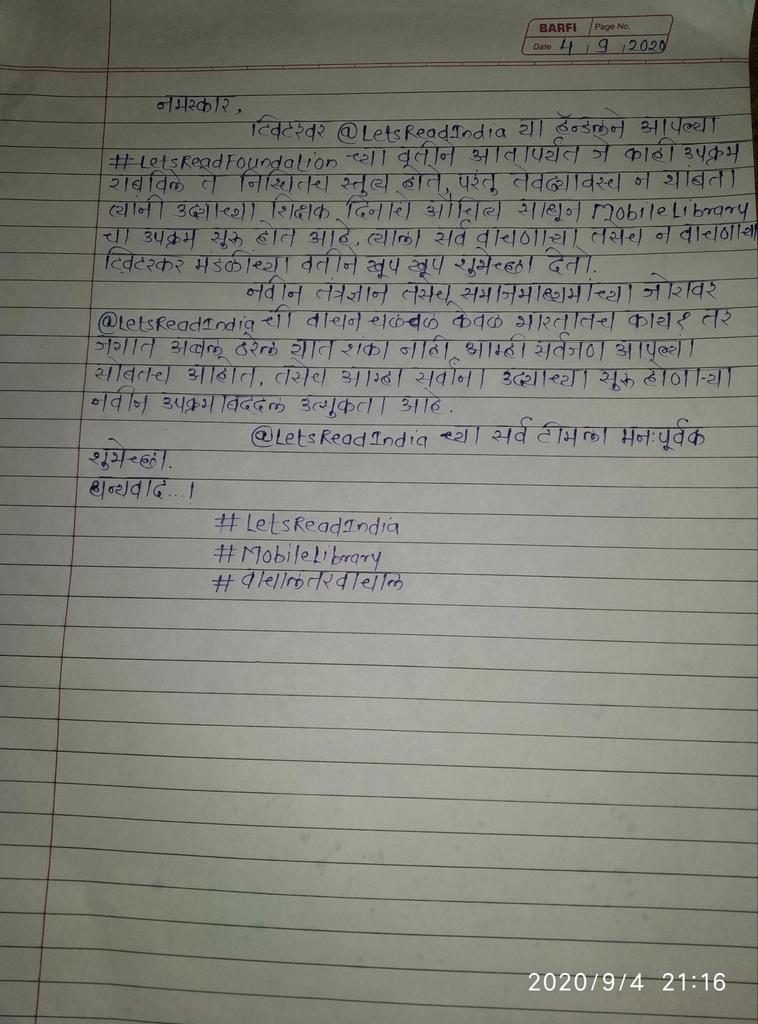 BARFI Page No.
Date 4 9 2020
नमस्कार,
ट्विटरवर @LetsReadIndia या हॅन्डलने आपल्या
#LetsReadFoundation च्या वृतीने आतापर्यंत जे काही उपक्रम
राबविले ते निश्चितच स्तुत्य होते, परंतु तेवढ्यावरच न थांबता
त्यांनी उद्याच्या शिक्षक दिनाचे औचित्य साधून MobileLibrary
चा उपक्रम सुरू होत आहे. त्याला सर्व वाचणाऱ्या तसेच न वाचणाऱ्या
ट्विटरकर मंडळीच्या वतीने खूप खूप शुभेच्छा देतो.
नवीन तंत्रज्ञान तसेच समाजमाध्यमांच्या जोरावर
@LetsReadIndia ची वाचन चळवळ केवळ भारतातच काय? तर
जगात अव्वल ठरेल यात शंका नाही. आम्ही सर्वजण आपल्या
सोबतच आहोत. तसेच आम्हा सर्वांना उद्याच्या सुरू होणाऱ्या
नवीन उपक्रमाबद्दल उत्सुकता आहे.
@LetsReadIndia च्या सर्व टीमला मनःपूर्वक
शुभेच्छा.
धन्यवाद...!
#LetsReadIndia
#MobileLibrary
#वाचालतरवाचाल
2020/9/4 21:16